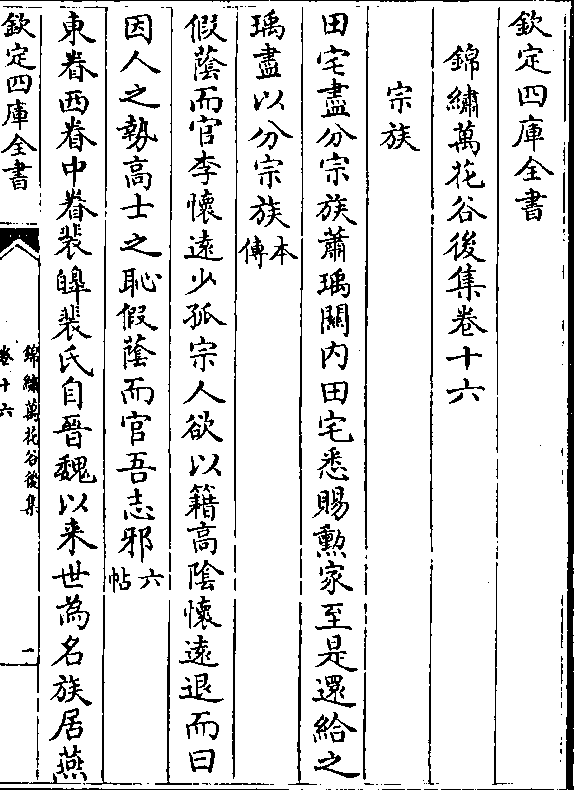 欽定四庫全書
錦繡萬花谷後集卷十六
宗族
田宅盡分宗族蕭瑀關内田宅悉賜勲家至是還給之
瑀盡以分宗族本傳
假蔭而官李懷遠少孤宗人欲以籍高隂懷遠退而曰
因人之勢高士之恥假蔭而官吾志邪六帖
東眷西眷中眷裴皥裴氏自晉魏以来世為名族居燕
欽定四庫全書
錦繡萬花谷後集
卷十六
一